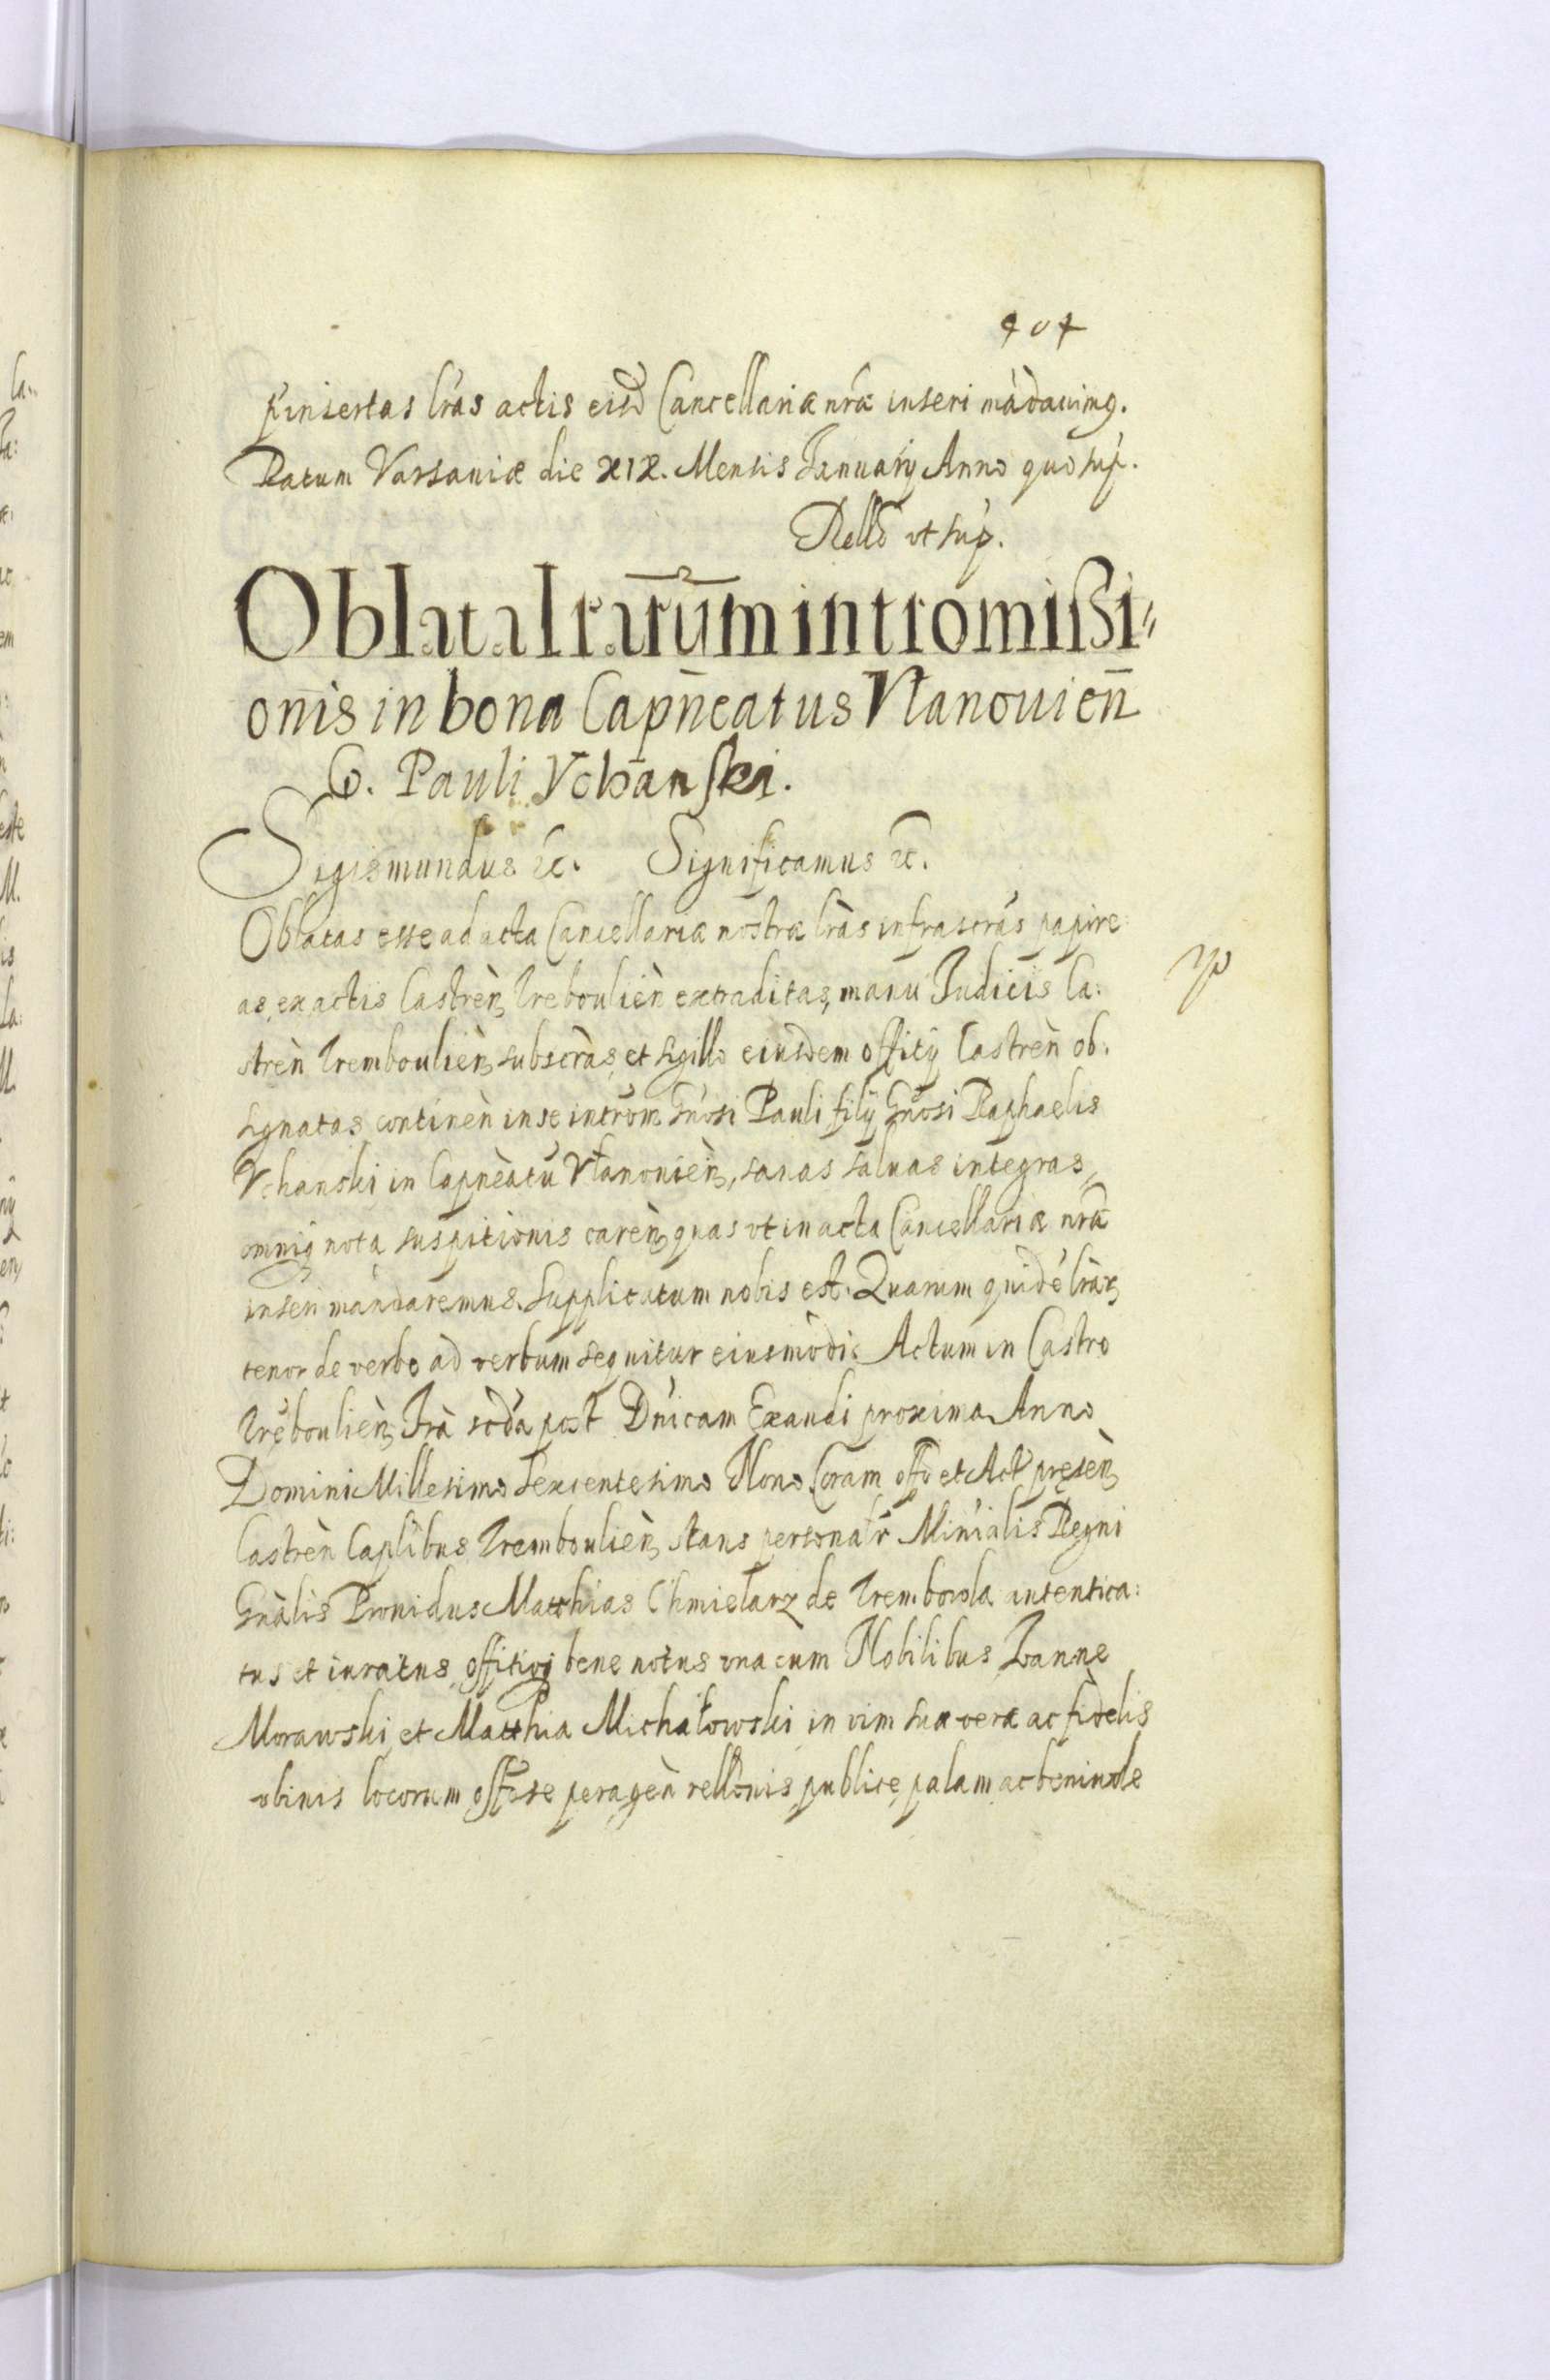 404
ꝑinsertas lrás actis eisd Cancellariæ nrǽ inseri mādauimꝯ.
Datum Varsauiæ die XIX. Mensis Ianuarij Anno quo sup.
Rellō vt sup.
Oblata lrarūm intromißi〃
onis in bona Capn̄eatus Vłanouien̄
G. Pauli Vchanski.
Sigismundus ꝛc. Significamus ꝛc.
Oblatas esse ad acta Cancellariæ nostræ lràs infrascrás papire:
as, ex actis Castrèn, Treboulièn extraditas, manu Iudicis Ca:
strèn Tremboulièn, subscràs, et sigillo eiusdem offitij Castrèn ob:
signatas, continèn in se introm̄. Gnósi Pauli filij Gnósi Raphaelis
Vchanski in Capnèatū Vłanouièn, sanas saluas integras,
omniq nota suspitionis carèn, quas vt in acta Cancellariæ nrǽ
inseri mandaremus. Supplicatum nobis est. Quarum quidé lràꝝ
tenor de verbo ad verbum sequitur eiusmodi: Actum in Castro
Trēboulièn, Frà scd́a post Dnícam Exaudi proxima Anno
Domini Millesimo Sexcentesimo Nono. Coram offō et Act̄ pręsèn,
Castrèn Caplíbus, Tremboulièn, stans personatr̄ Minialis Regni
Gnàlis Prouidus Matthias Chmielarz de Trembowla autentica:
tus et iuratus, offitioq bene notus vna cum Nobilibus Ioanne
Morawski, et Matthia Michałowski, in vim suæ veræ ac fidelis
vbiuis locorum offōse peragèn rellōnis, publice, palam, ac beniuole